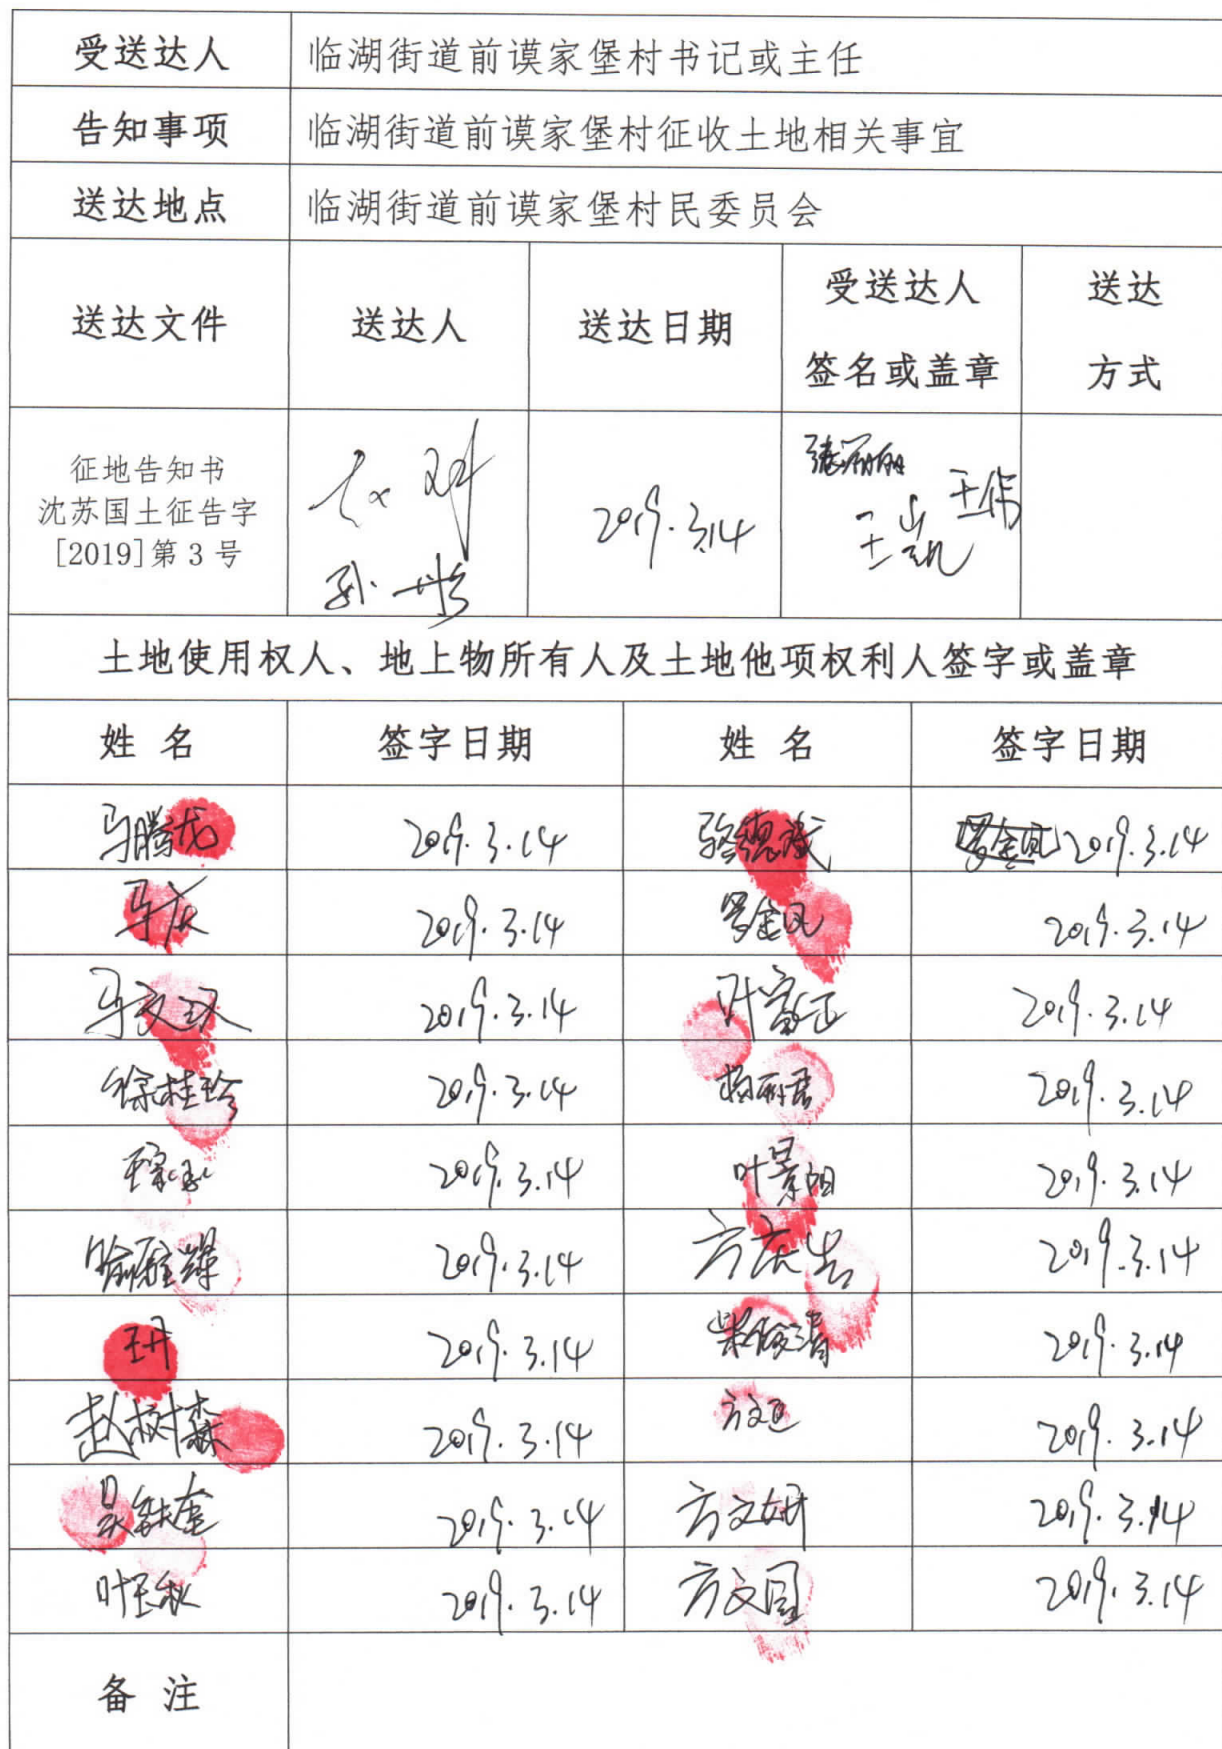 受送达人 临湖街道前谟家堡村书记或主任
告知事项 临湖街道前谟家堡村征收土地相关事宜
送达地点 临湖街道前谟家堡村民委员会
送达文件 送达人 送达日期 受送达人签名或盖章 送达方式
征地告知书
沈苏国土征告字
[2019]第 3 号
2019.3.14
张丽丽
王伟
王凯
土地使用权人、地上物所有人及土地他项权利人签字或盖章
姓 名 签字日期 姓 名 签字日期
马腾龙 2019.3.14 骆德斌 罗金凤 2019.3.14
2019.3.14 罗金凤 2019.3.14
马文汉 2019.3.14 叶富正 2019.3.14
徐桂玲 2019.3.14 杨丽君 2019.3.14
2019.3.14 叶景阳 2019.3.14
2019.3.14 方庆吉 2019.3.14
王丹 2019.3.14 2019.3.14
赵树森 2019.3.14 2019.3.14
吴铁奎 2019.3.14 方文妍 2019.3.14
叶玉秋 2019.3.14 方文国 2019.3.14
备 注